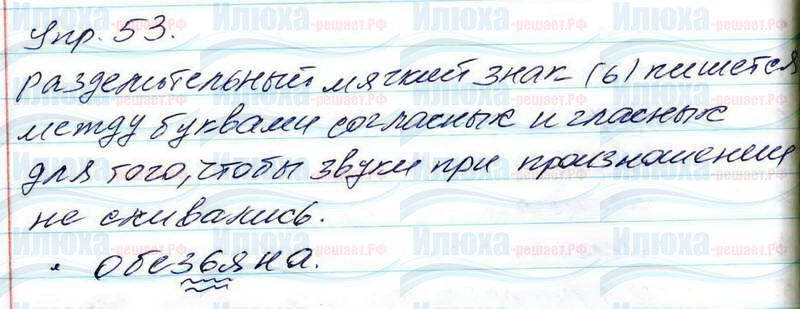 Упр. 53.
Разделительный мягкий знак (ь) пишется
между буквами согласных и гласных
для того, чтобы звуки при произношении
не сливались.
• обезьяна.
Илюха-решает.РФ